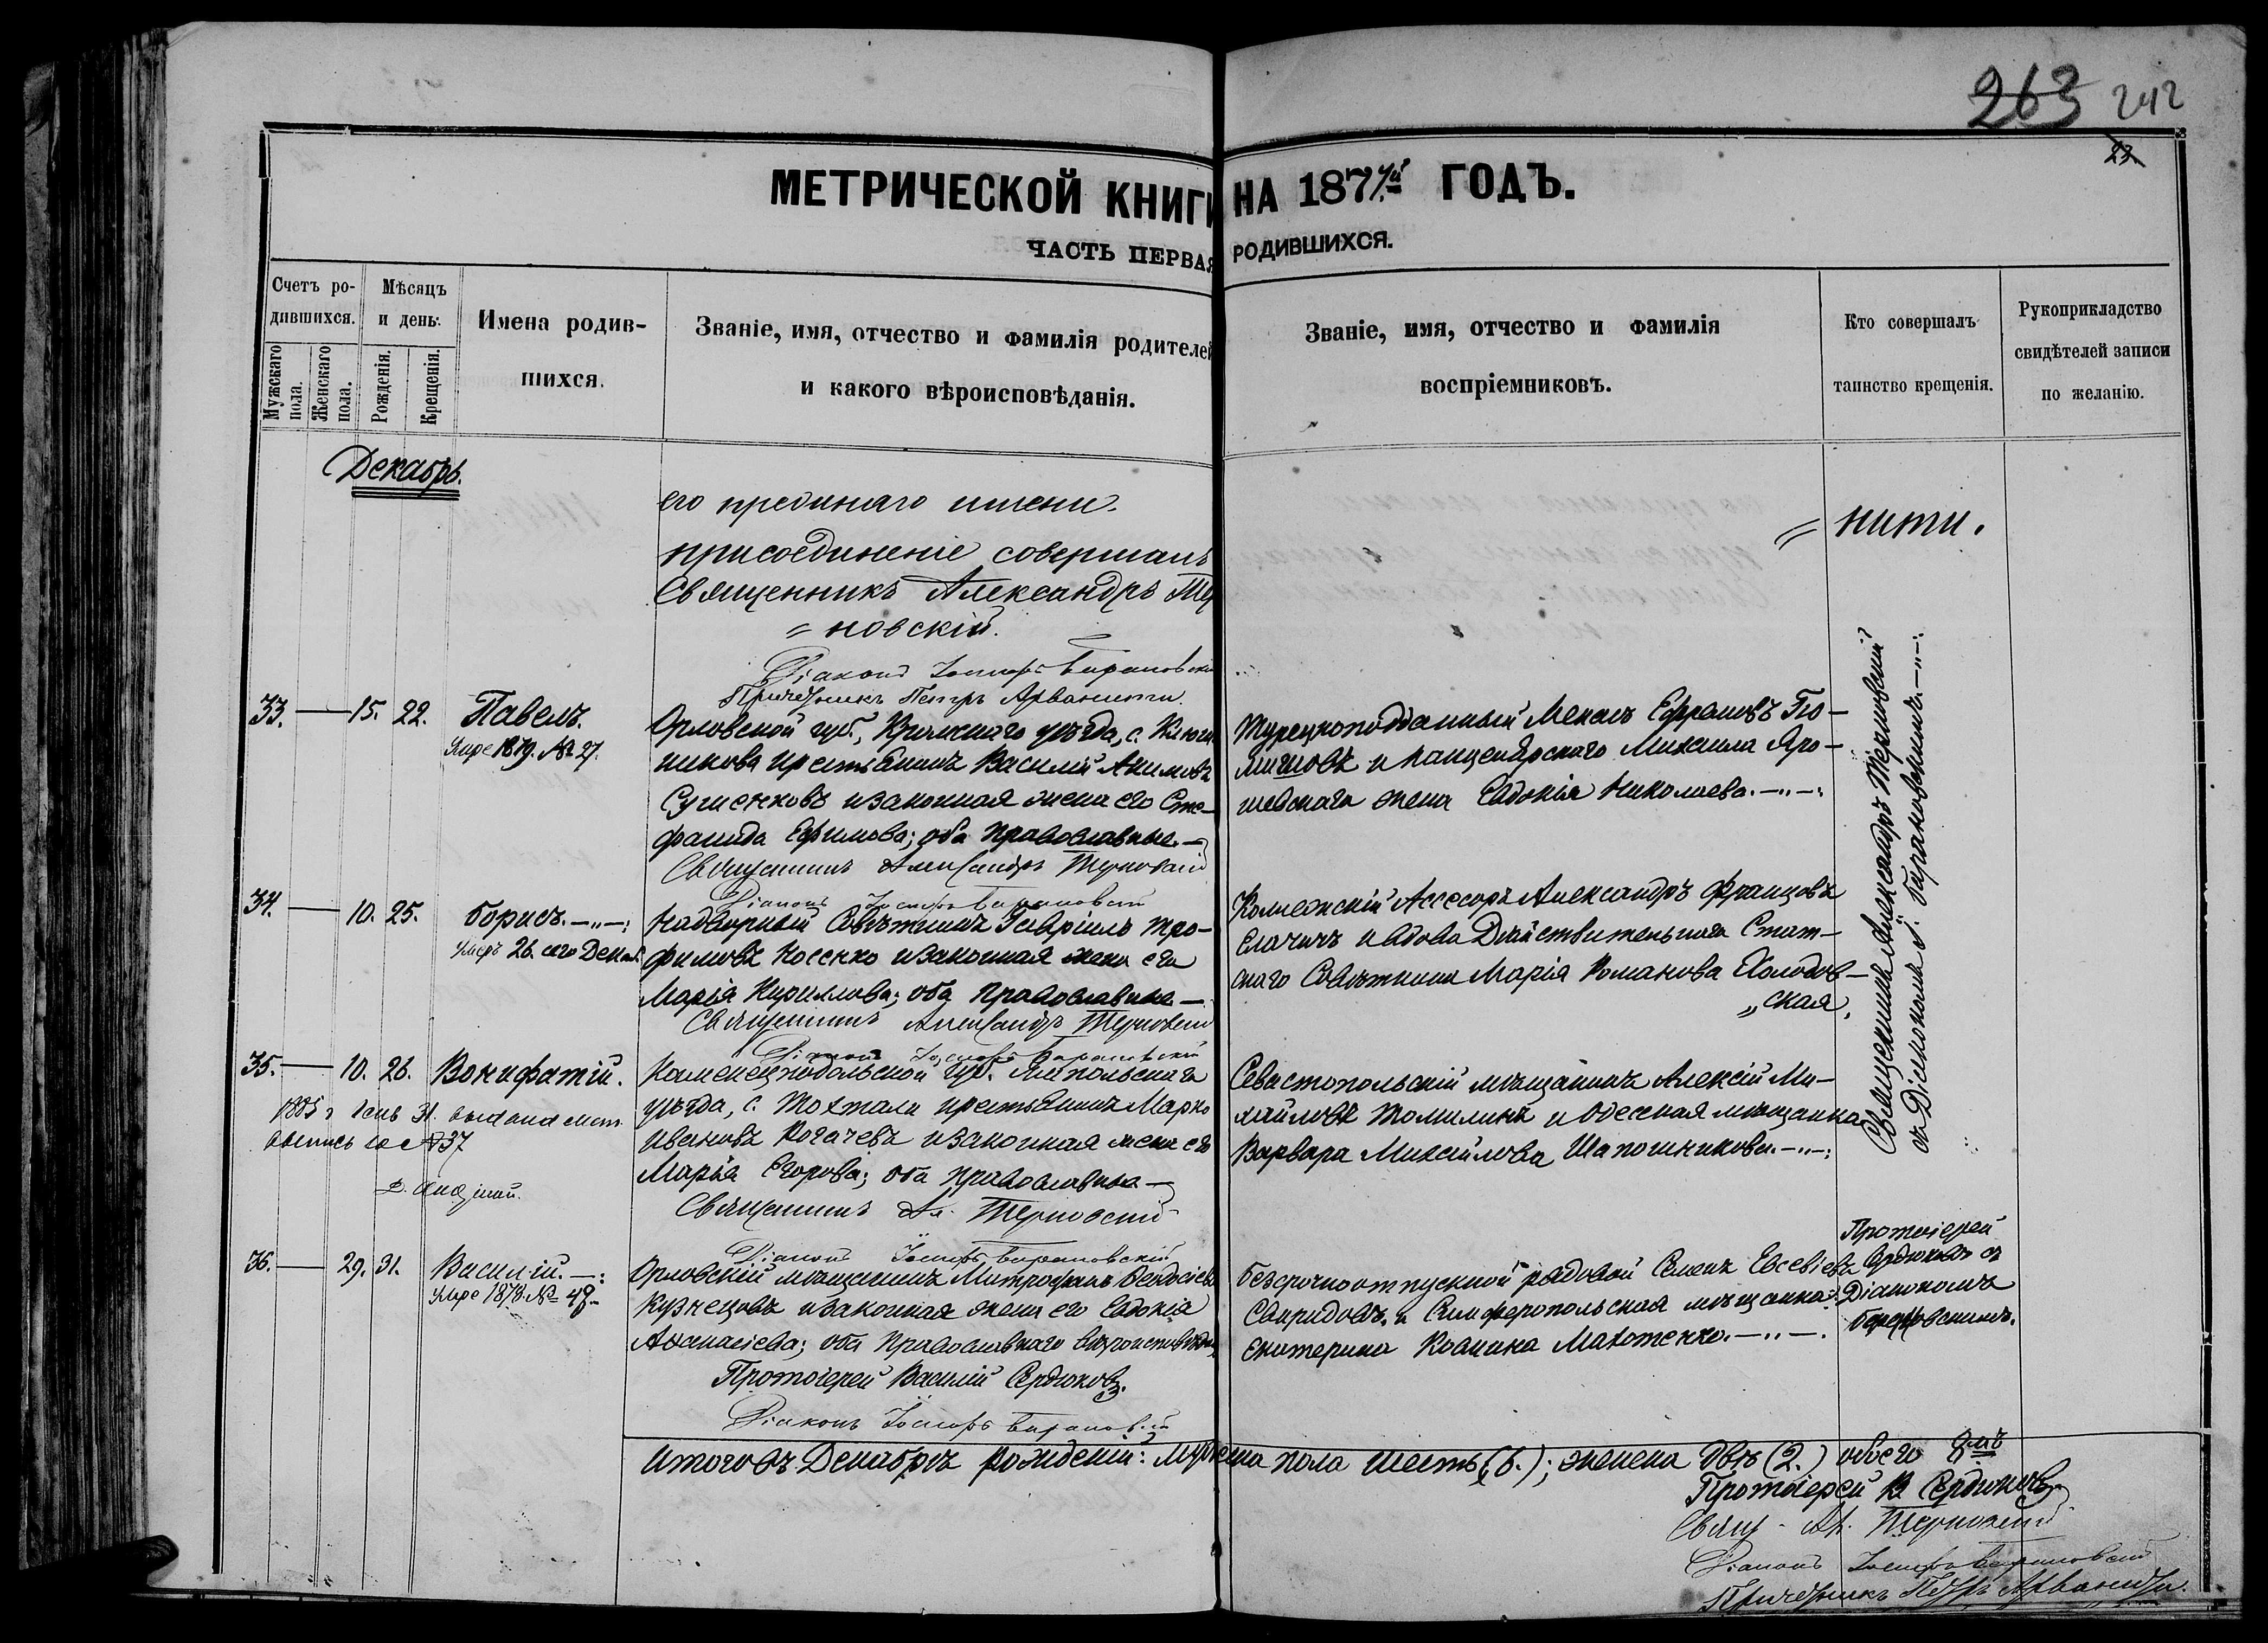 263 242
23.
МЕТРИЧЕСКОЙ КНИГИ НА 1877й ГОДЪ.
ЧАСТЬ ПЕРВАЯ РОДИВШИХСЯ.
Счетъ ро-
дившихся.
Мужскаго
пола.
Женскаго
пола.
Мѣсяцъ
и день:
Рожденія.
Крещенія.
Имена родив-
шихся.
Званіе, имя, отчество и фамилія родителей
и какого вѣроисповѣданія.
Званіе, имя, отчество и фамилія
воспріемниковъ.
Кто совершалъ
таинство крещенія.
Рукоприкладство
свидѣтелей записи
по желанію.
Декабрь.
его имени.
= нити.
присоединеніе совершалъ
Священникъ Александръ Тер
= новскій.
Діаконъ Іосифъ Барановскій
Причетникъ Петръ Арванити.
33. — 15. 22.
Павелъ.
Умре 1879. № 27.
Орловской губ., уѣзда, с.
никова крестьянинъ Василій Акимовъ
Сушенковъ и законная жена его Сте-
фанида Ефимова; оба православные.—
Священникъ Александръ Терновскій
Діаконъ Іосифъ Барановскій
Турецкоподданный Ефремовъ
и Михаила Яро-
шевскаго жена Евдокія Николаева.—„—:
34. — 10. 25.
Борисъ.—„—:
Умеръ 26. сего Декаб.
Надворный Совѣтникъ Гавріилъ Тро-
фимовъ Косенко и законная жена его
Марія Кириллова; оба православные—
Священникъ Александръ Терновскій
Діаконъ Іосифъ Барановскій
Коллежскій Ассесоръ Александръ Францовъ
и вдова Дѣйствительнаго Стат-
скаго Совѣтника Марія Романова Холодов-
„ская.
35. — 10. 26.
Вонифатій.
1885 г 31. выдана мет.
выпись за № 37
Каменецподольской губ.
уѣзда, с. крестьянинъ Марко
Ивановъ Рогачевъ и законная жена его
Марія Егорова; оба православные—
Священникъ Ал. Терновскій
Діаконъ Іосифъ Барановскій
Севастопольскій мѣщанинъ Алексій Ми-
хайловъ Томилинъ и Одесская мѣщанка
Варвара Михайлова Шапошникова.—„—:
Священникъ Александръ Терновскій
съ Діакономъ І. Барановскимъ.—„—:
36. — 29. 31.
Василій.—:
Умре 1878. № 48.
Орловскій мѣщанинъ Митрофанъ Ѳеодосіевъ
Кузнецовъ и законная жена его Евдокія
Аѳанасіева; оба православнаго вѣроисповѣдан.
Протоіерей Василій Сердюковъ.
Діаконъ Іосифъ Барановскій
Безсрочноотпускной рядовой Семенъ Евсевіевъ
Свиридовъ, и Симферопольская мѣщанка
Екатерина Космина Махотенко.—„—.
Протоіерей
Сердюковъ съ
Діакономъ
Барановскимъ.
Итого въ Декабрѣ рожденій: мужска пола шесть (6.); женска двѣ (2.) обоего 8мь
Протоіерей В Сердюковъ
Свящ. Ал. Терновскій
Діаконъ Іосифъ Барановскій
Причетникъ Петръ Арванити.